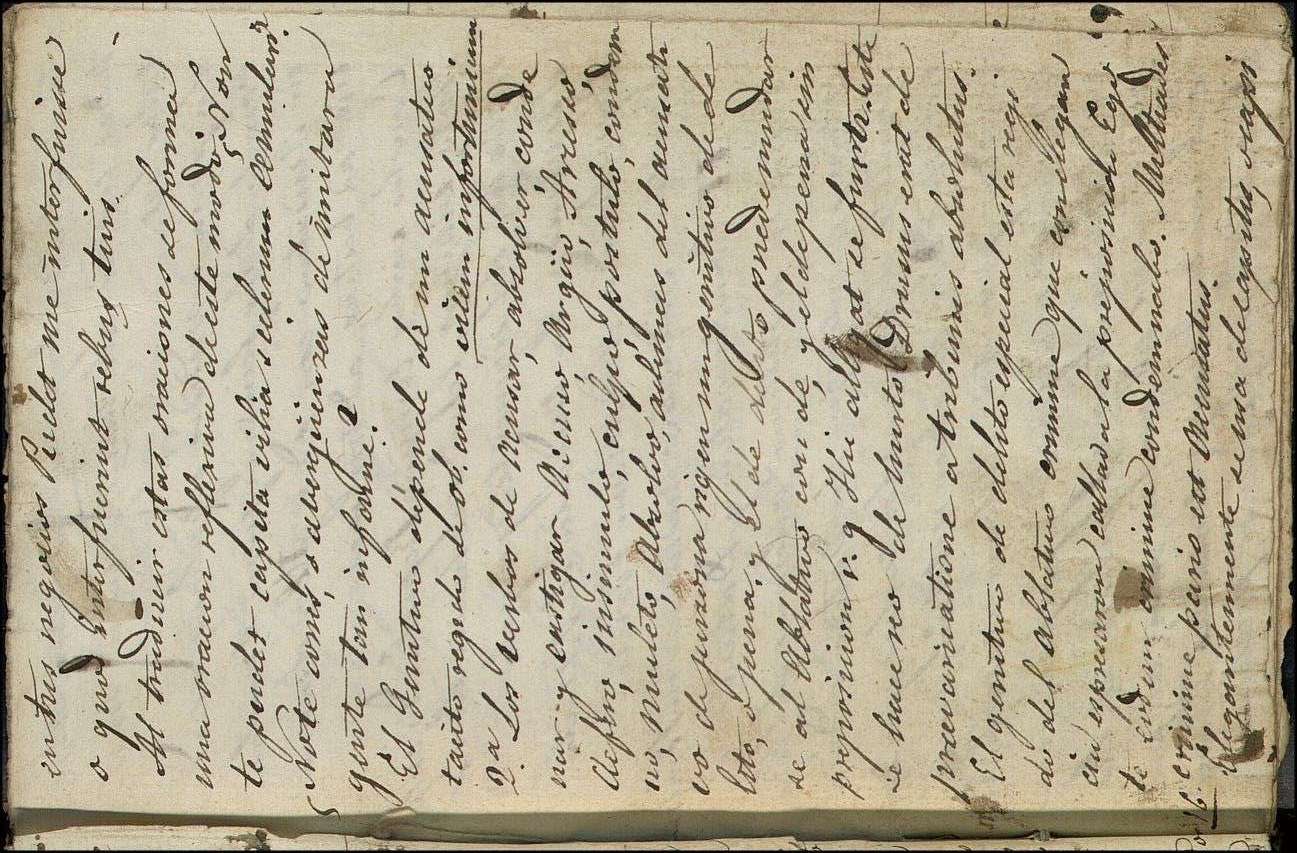 en tus negocios Pudet me interfuisse
o quod interfuerint rebus tuis.
Al traducir estas oraciones se forma
una oracion reflexiva de este modo: ¿Non
te pudet capita vilia
¿No te corres, o avergüenzas de imitar a
gente tan infame?
El Genitivo depende de in acusativo
tacito regido de ob. como vilem infortunium
2a Los verbos de acusar, absolver, conde
nar y castigar Acuso, Arguo, Arcesso
defero, insimulo, culpo, postulo, condem
no, mulcto, Absolvo, ademas del acusati
vo de persona rigen un genitivo de de
lito, o pena; y el de delito puede mudar
se al Ablativo con de, y el de pena sin
preposicion v. g Hic allegat se furti. Este
se acuso de hurto. Drusus erat de
praevaricatione a tribunis absolutus.
El genitivo de delito especial esta regi
do del ablativo crimine que con elegan
cia expresaron callada la preposicion Ego
te eodem crimine condemnabo. Miltiades
crimine pario est accusatus.
16 Elegantemente se usa de capitis, capi